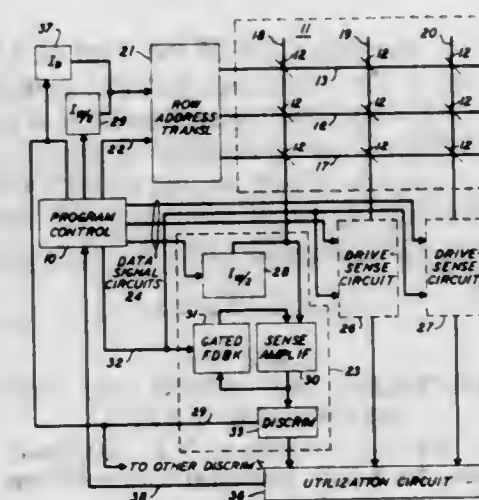 37
I_R
21
ROW
ADDRESS
TRANSL
I_W/2
29
22
11
18
19
20
12
12
12
13
12
12
12
16
12
12
12
17
PROGRAM
CONTROL
10
DATA
SIGNAL
CIRCUITS
24
I_W/2
28
DRIVE-
SENSE
CIRCUIT
26
DRIVE-
SENSE
CIRCUIT
27
31
GATED
FDBK
SENSE
AMPLIF
30
32
23
39
DISCRIM
33
TO OTHER DISCRIM'S
38
36
UTILIZATION CIRCUIT